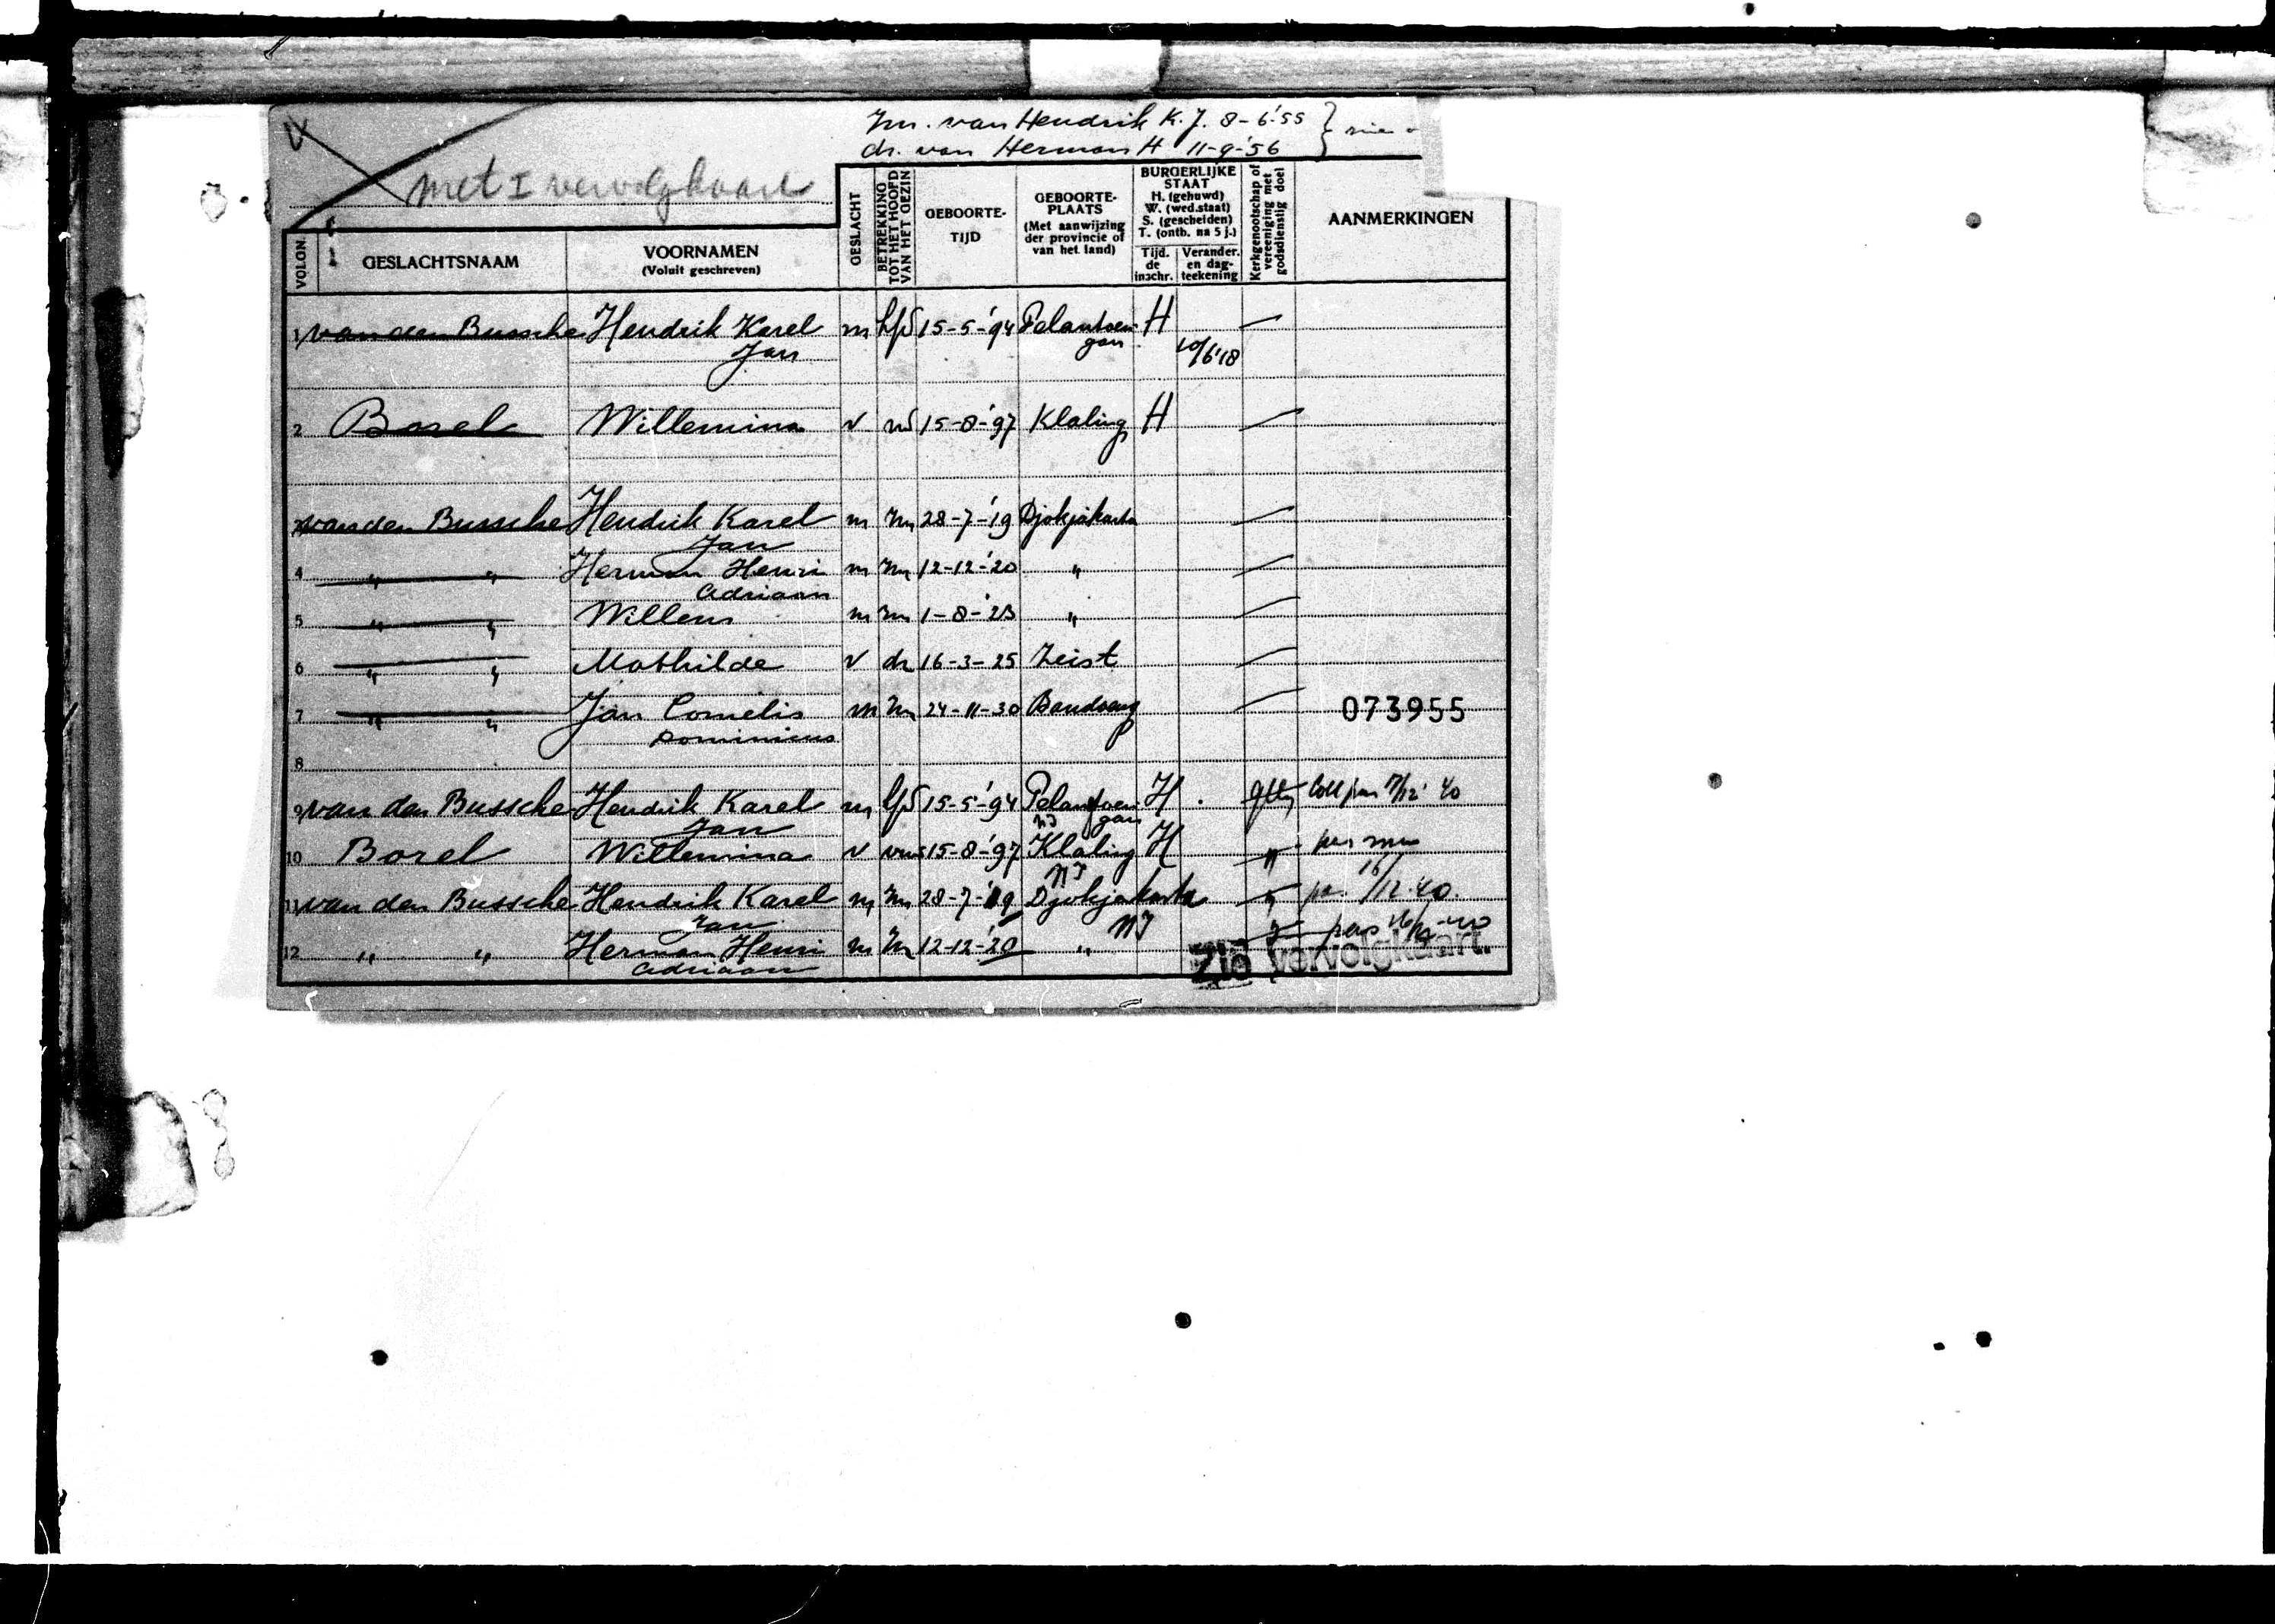 zn. van Hendrik K.J. 8-6-'55 }
dr. van Herman H 11-9-'56
met I vervolgkaart
VOLGN.
GESLACHTSNAAM
VOORNAMEN
(Voluit geschreven)
GESLACHT
BETREKKING
TOT HET HOOFD
VAN HET GEZIN
GEBOORTE-
TIJD
GEBOORTE-
PLAATS
(Met aanwijzing
der provincie of
van het land)
BURGERLIJKE
STAAT
H. (gehuwd)
W. (wed.staat)
S. (gescheiden)
T. (ontb. na 5 j.)
Tijd.
de
inschr.
Verander.
en dag-
teekening
Kerkgenootschap of
vereeniging met
godsdienstig doel
AANMERKINGEN
1 van den Bussche Hendrik Karel m hfd 15-5-'94 Pelantoen- H
Jan gan 20/6'18
2 Borel Willemina v 15-8-'97 Klaling H
3 van den Bussche Hendrik Karel m zn 28-7-'19 Djokjakarta
Jan
4 " " Herman Henri m zn 12-12-'20 "
Adriaan
5 " " Willem m zn 1-8-'23 "
6 " " Mathilde v dr 16-3-25 Zeist
7 " " Jan Cornelis m zn 24-11-30 Bandoeng 073955
Dominicus
8
9 van den Bussche Hendrik Karel m hfd 15-5-'94 Pelantoen- H
Jan NI gan
10 Borel Willemina v 15-8-'97 Klaling H "
NI
11 van den Bussche Hendrik Karel m zn 28-7-'19 Djokjakarta " 16/12-40.
Jan NI
12 " " Herman Henri m zn 12-12-'20 " pers
Adriaan
Zie vervolgkaart.